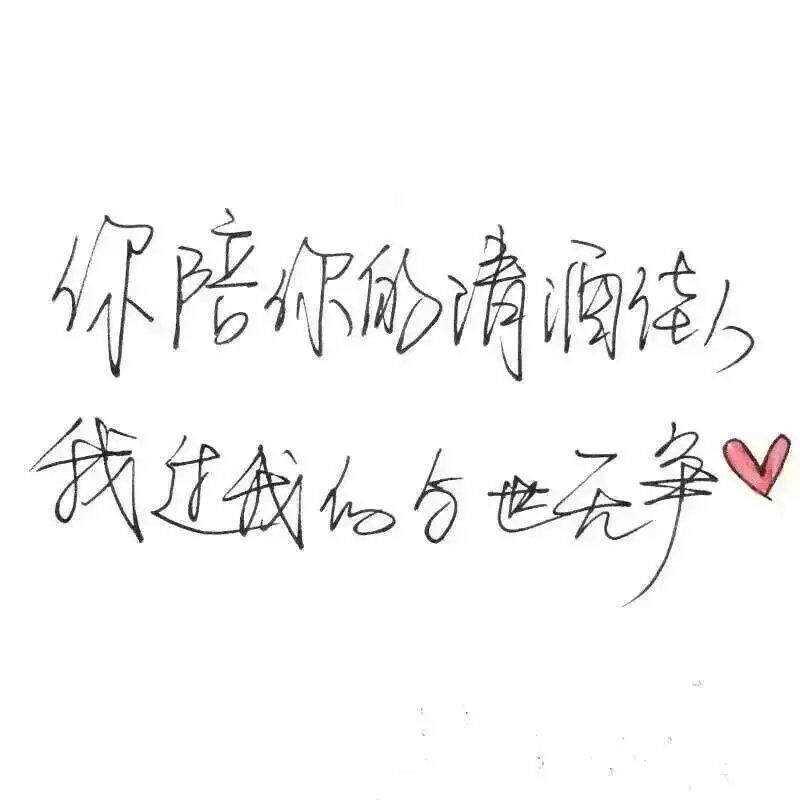 你陪你的清酒佳人
我过我的与世无争